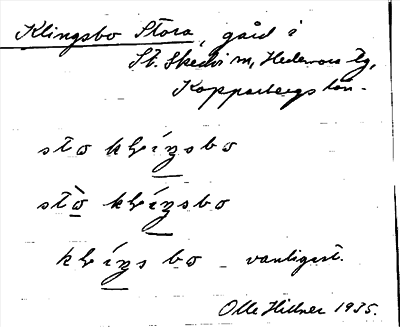 Klingsbo Stora, gård i
St. Skedvi sn, Hedemora tg,
Kopparbergs län.
sto klíŋsbo
stò klíŋsbo
klíŋsbo - vanligast.
Olle Hidner 1935.